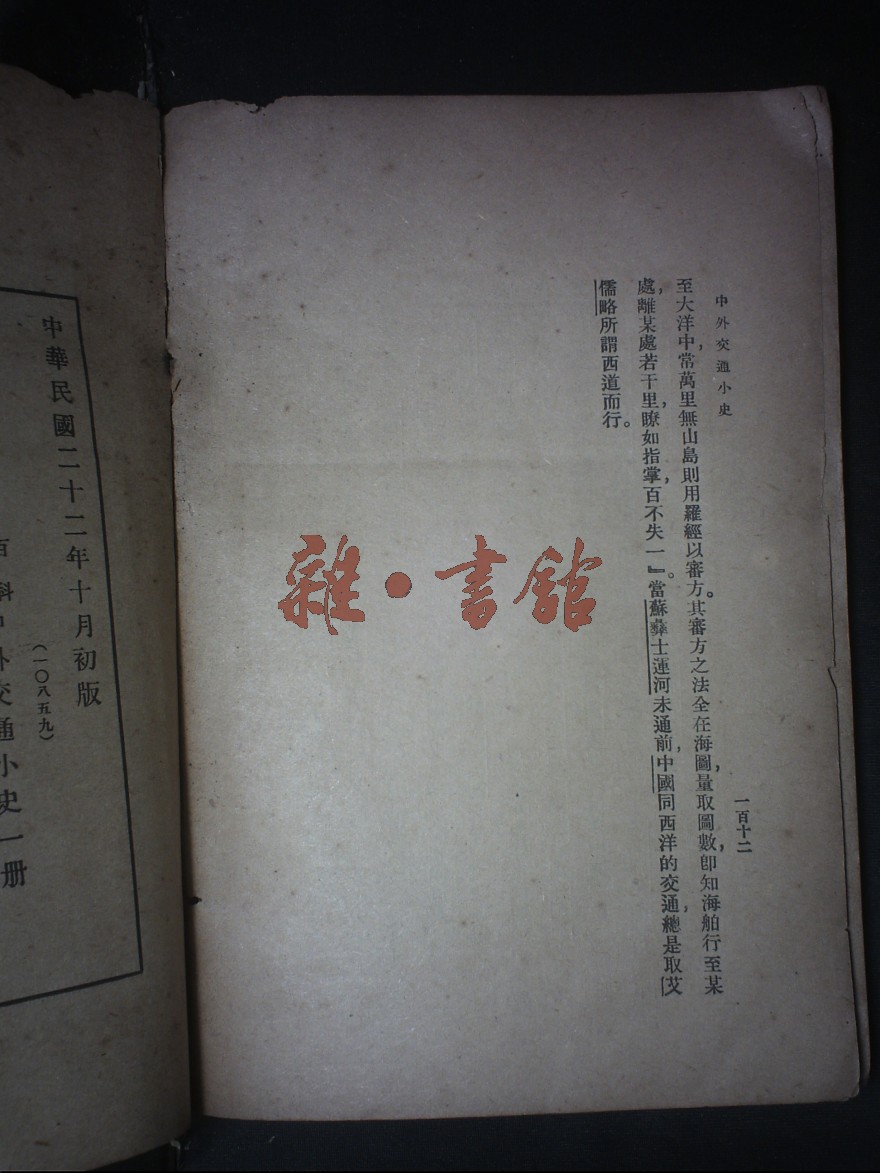 中外交通小史
一百十二
至大洋中，常萬里無山島，則用羅經以審方。其審方之法全在海圖，量取圖數，卽知海舶行至某
處，離某處若干里，瞭如指掌，百不失一』。當蘇彝士運河未通前，中國同西洋的交通，總是取艾
儒略所謂西道而行。
雜·書館
中華民國二十二年十月初版
(一〇八五九)
百科中外交通小史一册